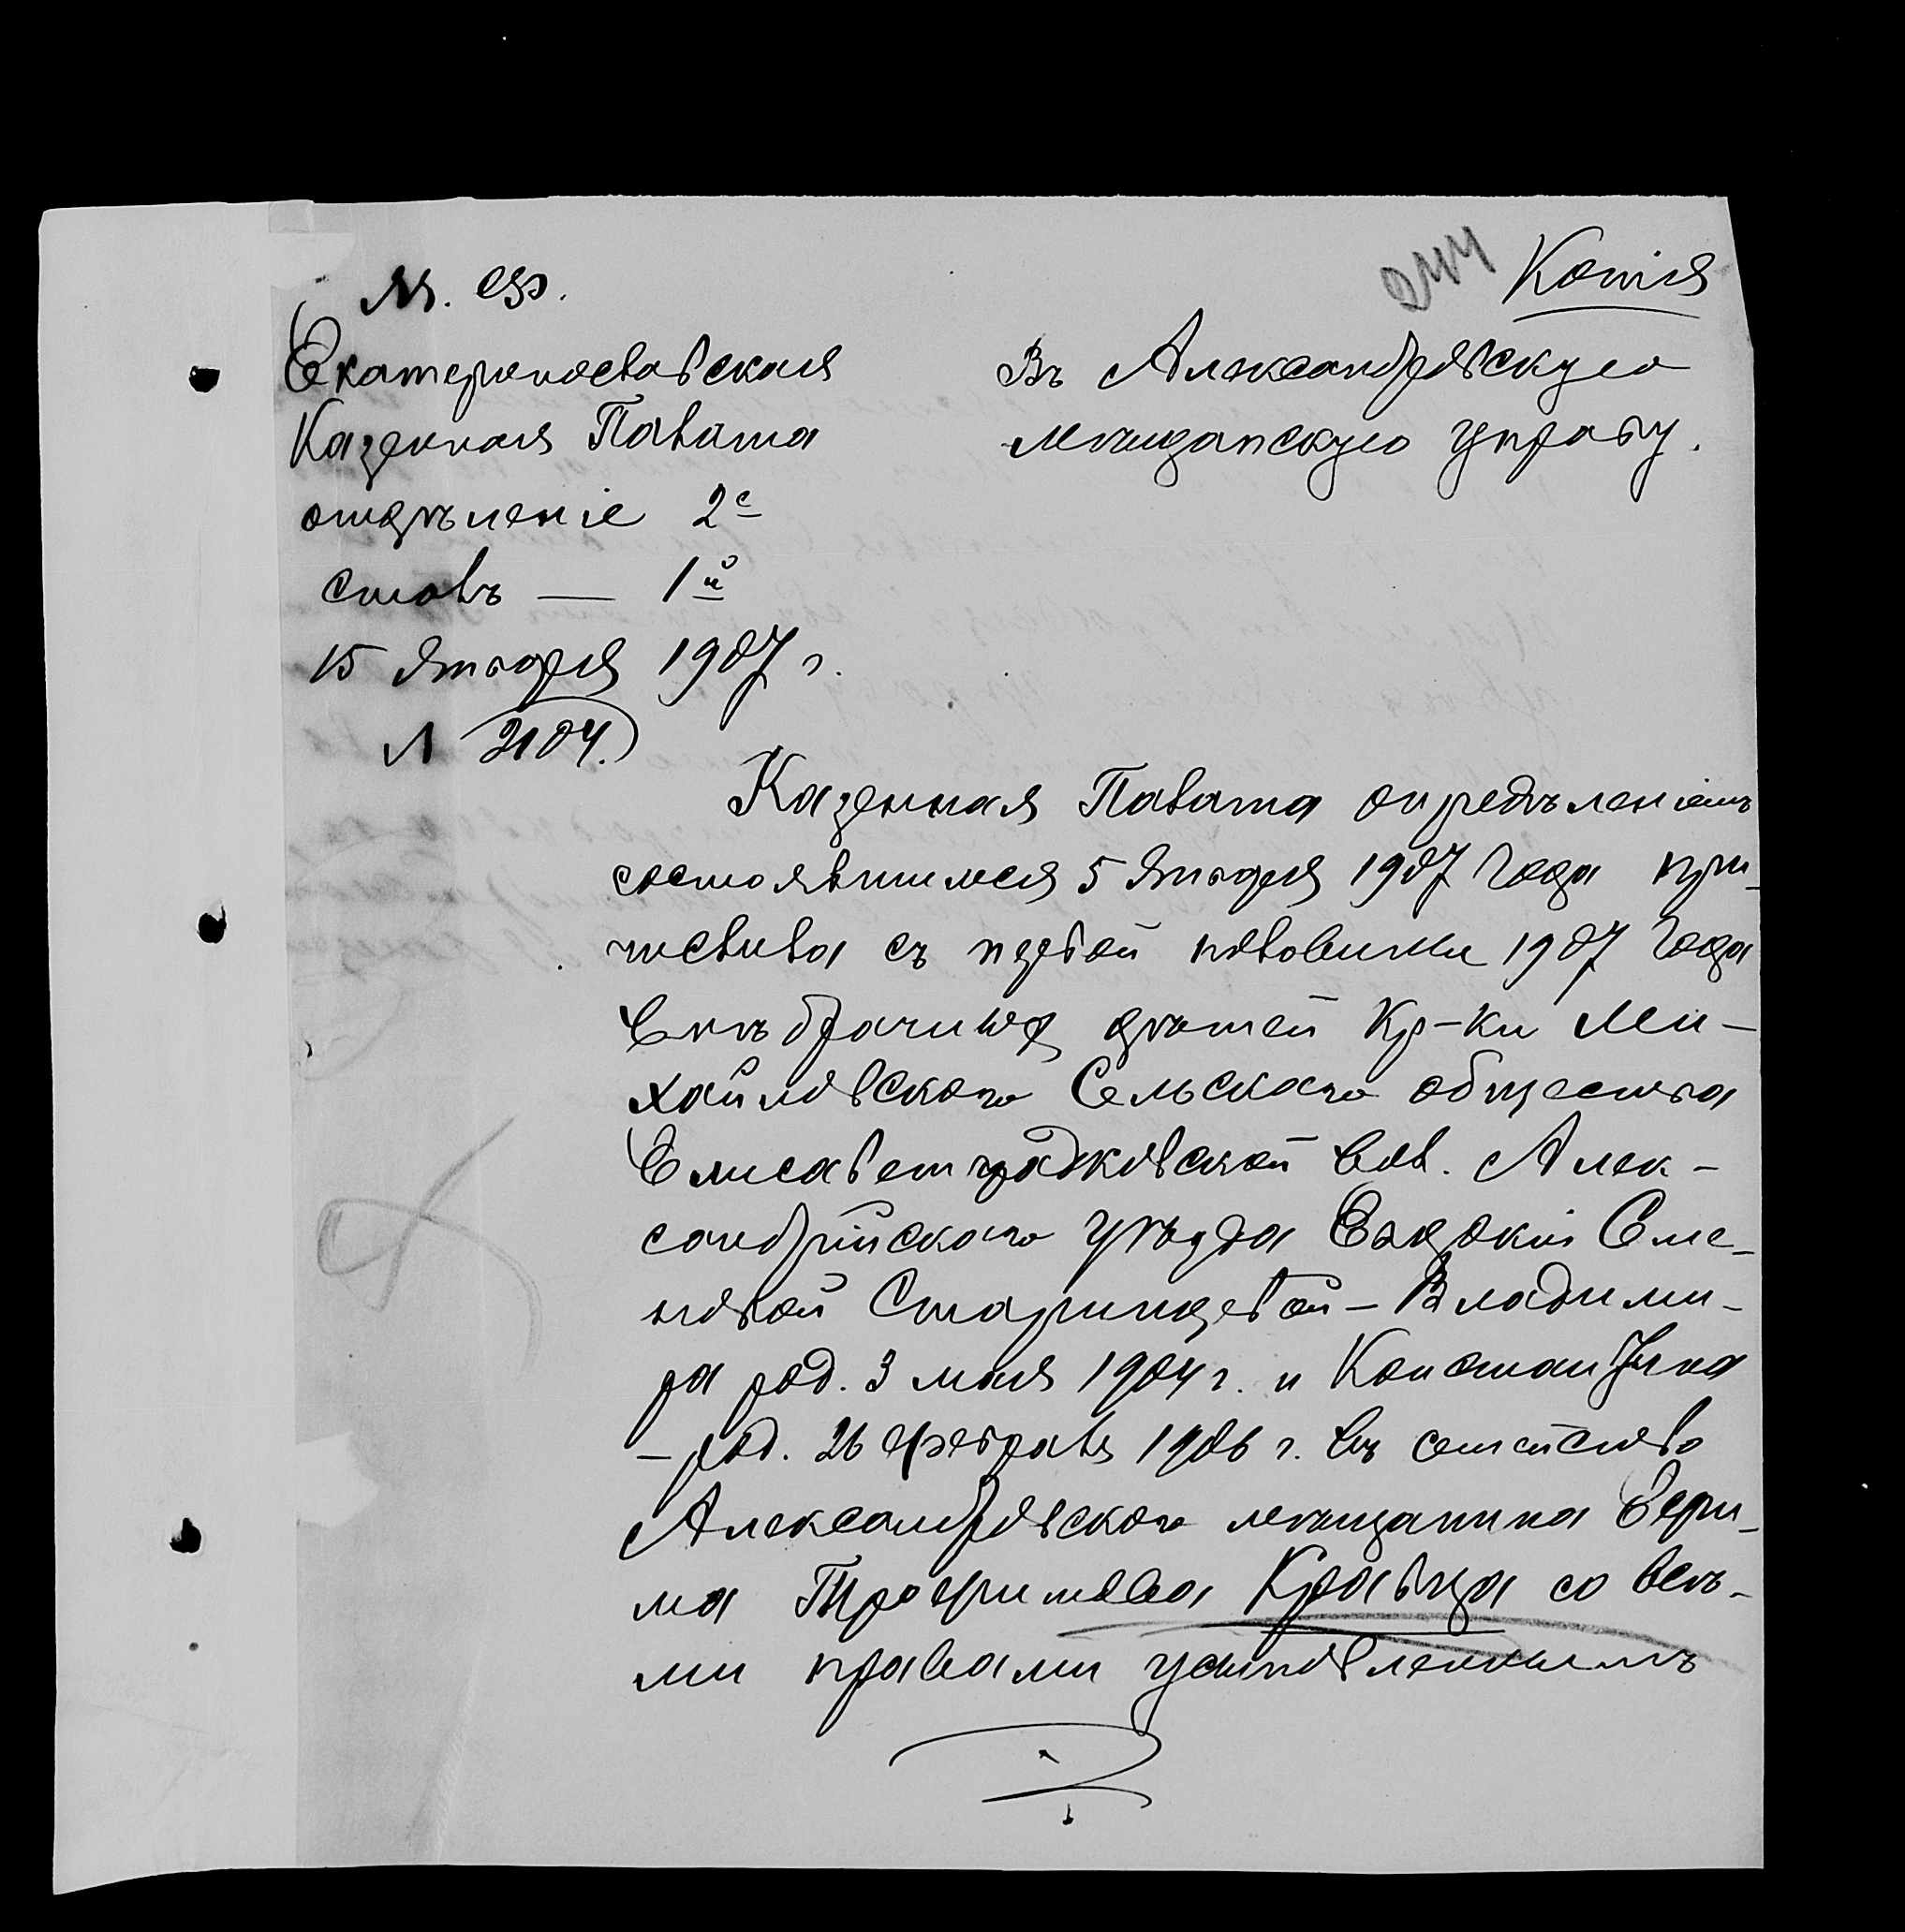 244
Копія
М. Ф.
Екатеринославская
Казенная Палата
отдѣленіе 2е
столъ — 1й
15 Января 1907 г.
№ 2104.
Въ Александровскую
мѣщанскую управу.
Казенная Палата опредѣленіемъ
состоявшимся 5 Января 1907 года при-
числила съ первой половины 1907 года
внѣбрачныхъ дѣтей Кр-ки Ми-
хайловскаго Сельскаго общества
Елисаветградковской вол. Алек-
сандрійскаго уѣзда Евдокіи Семе-
новой Старинцевой — Владими-
ра род. 3 мая 1904 г. и Константина
— род. 26 февраля 1906 г. въ семейство
Александровскаго мѣщанина
Трофимова Кравца со всѣ-
ми правами усыновленнымъ